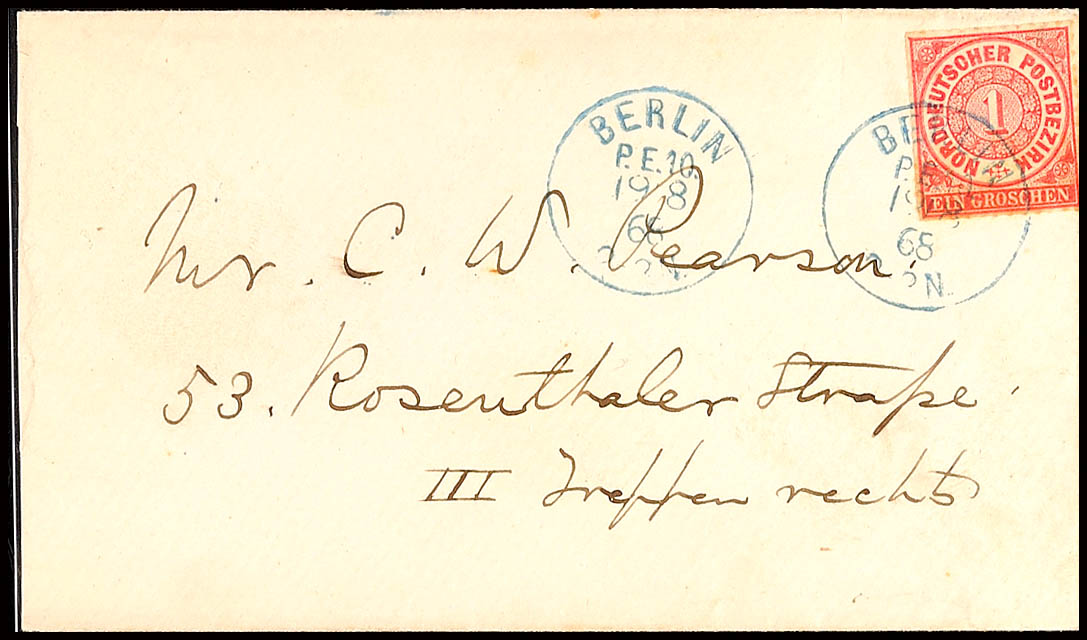 NORDDEUTSCHER POSTBEZIRK
1
EIN GROSCHEN
BERLIN
P.E.10.
19 8
68
BE
P.E.
19 8
68
N.
Mr. C. W. Pearson,
53. Rosenthaler Straße
III Treppen rechts